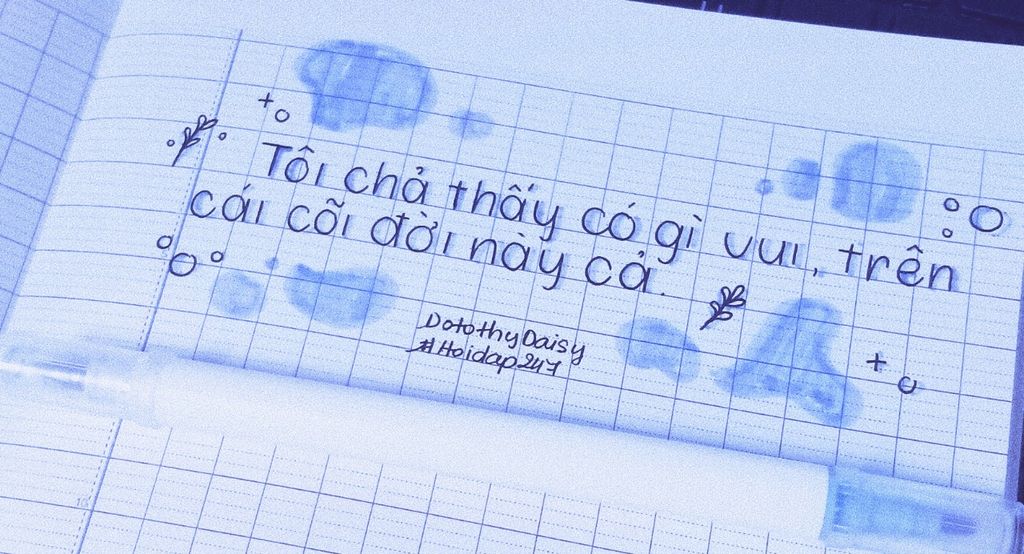 Tôi chả thấy có gì vui, trên
cái cõi đời này cả.
DotothyDaisy
#Hoidap247